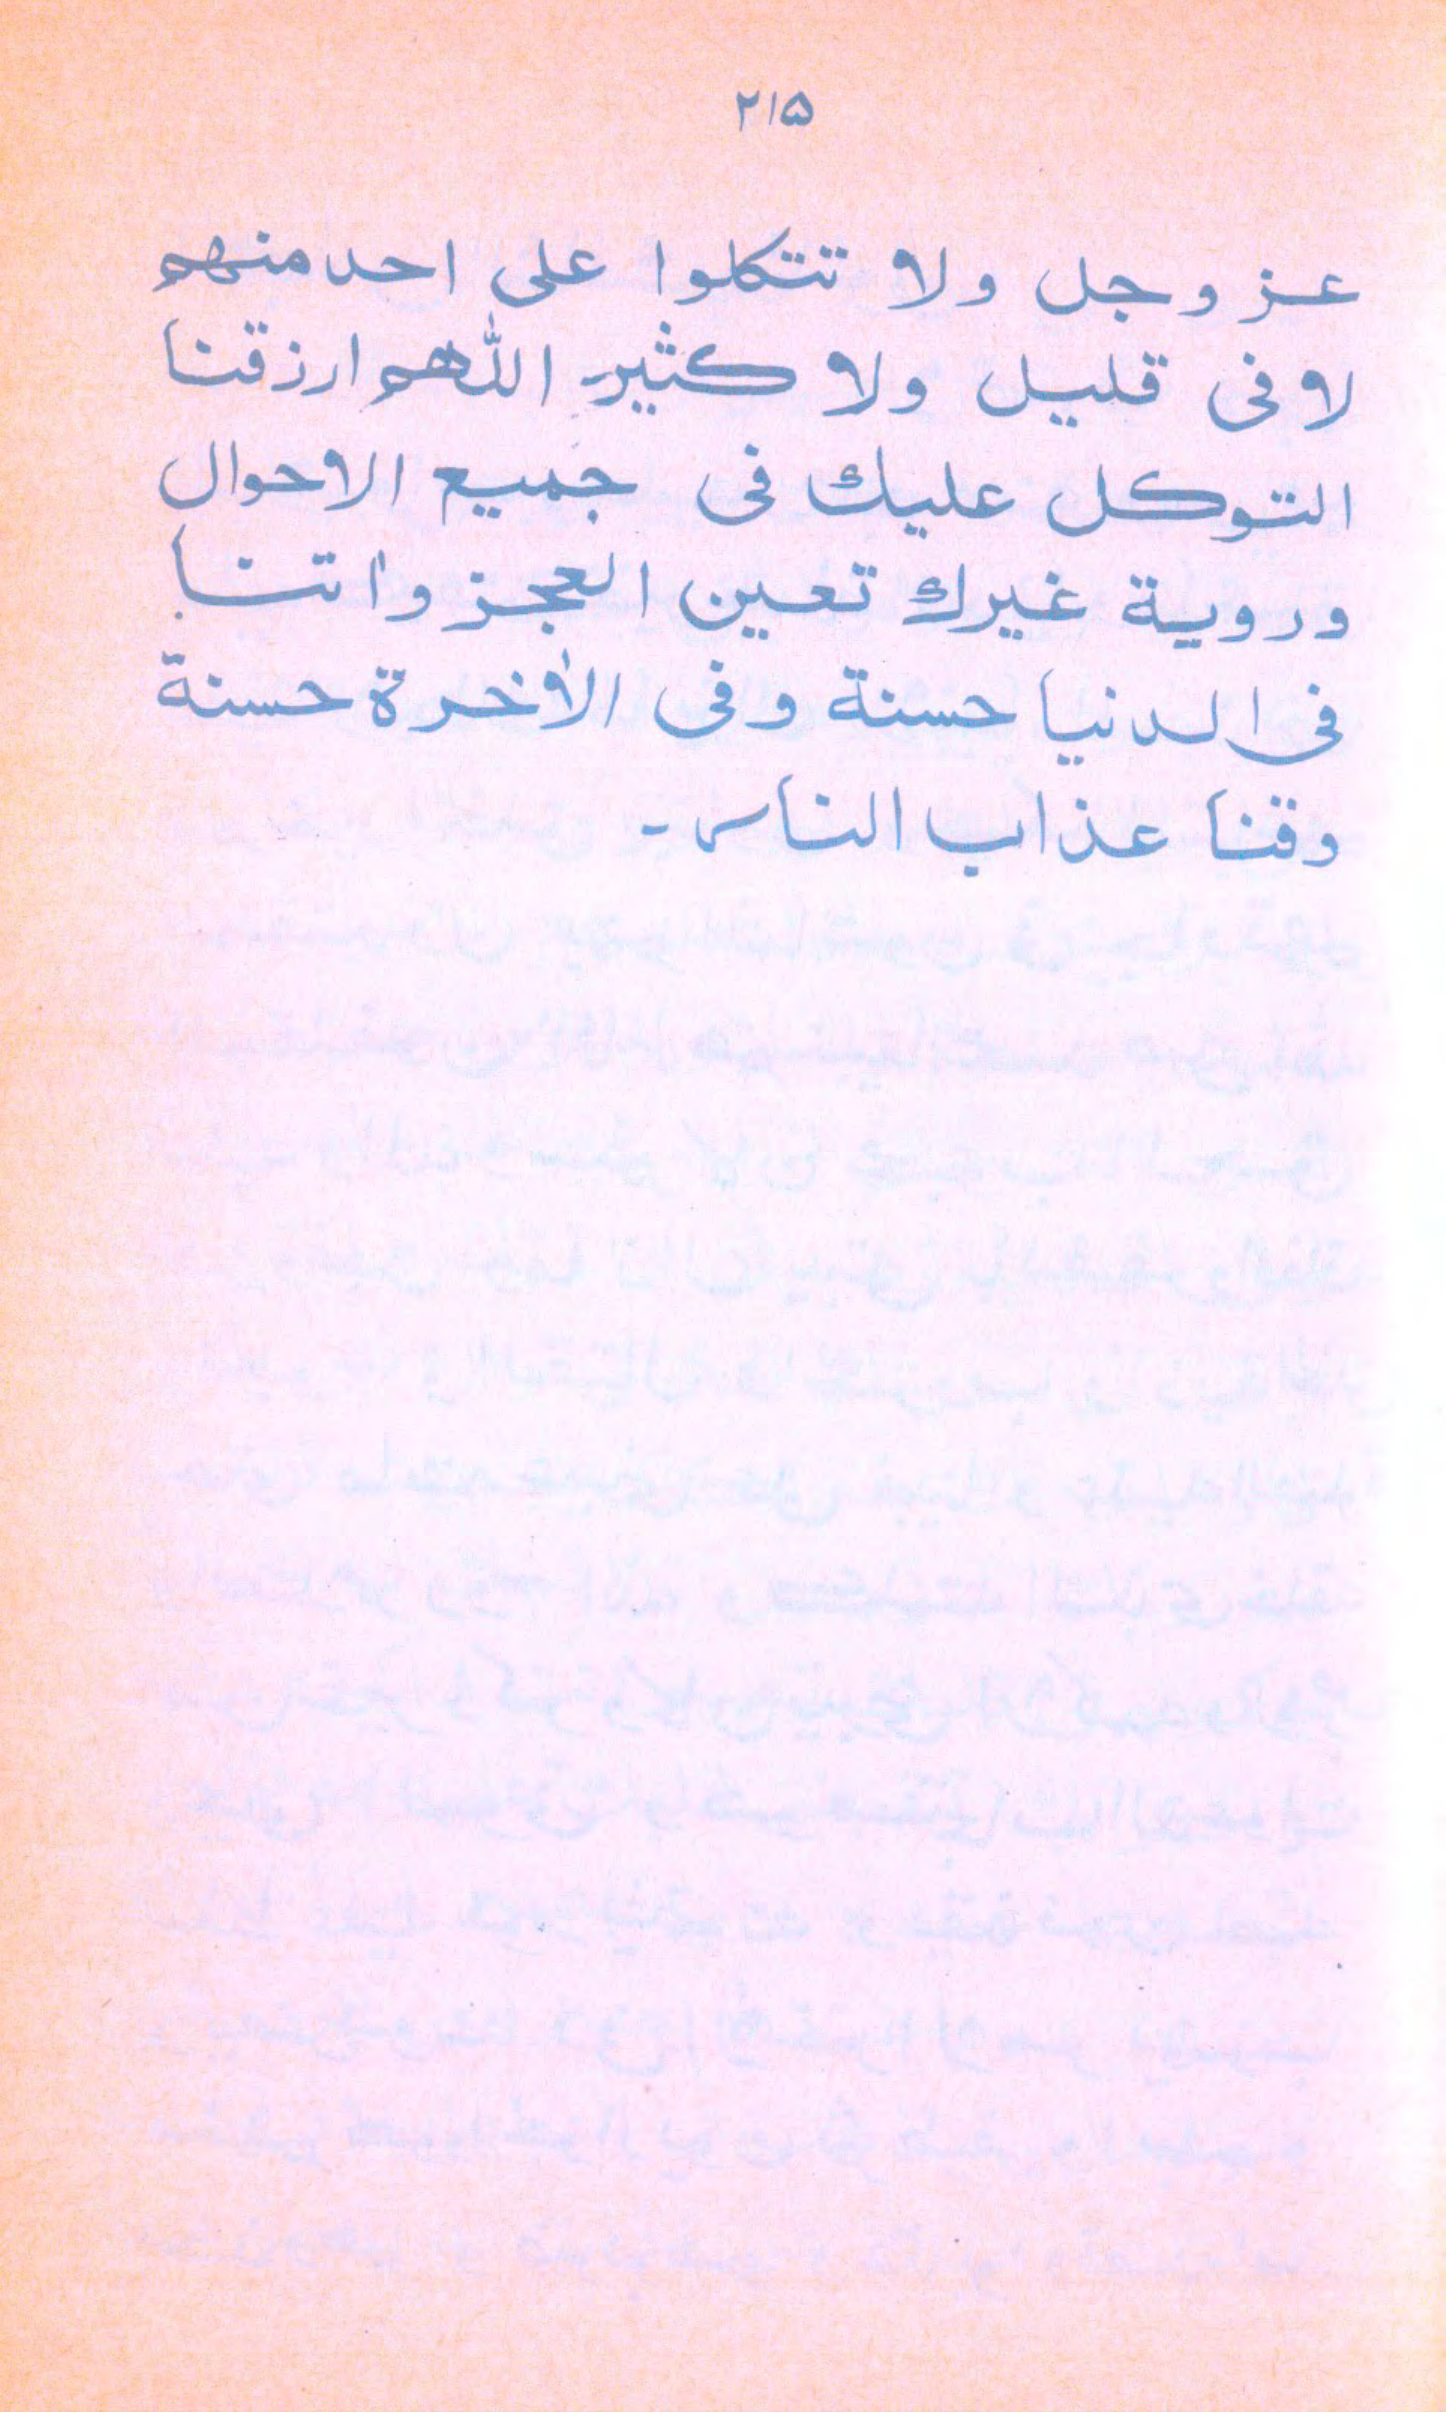 ۲۱۵
عز وجل ولا تتكلوا على احد منهم
لا فى قليل ولا كثير اللٰهم ارزقنا
التوكل عليك فى جميع الاحوال
وروية غيرك تعين العجز واٰتنا
فى الدنيا حسنة وفى الاٰخرة حسنة
وقنا عذاب الناس ـ